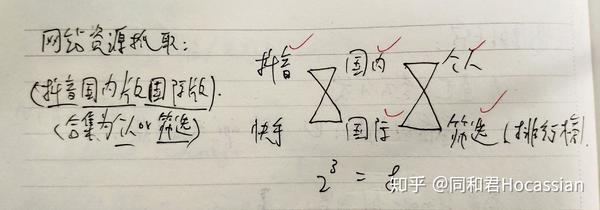 网络资源抓取：
(抖音国内版国际版).
(合集为个人or筛选)
抖音 国内 个人
快手 国际 筛选(排行榜)
2³ = 8
知乎 @同和君Hocassian